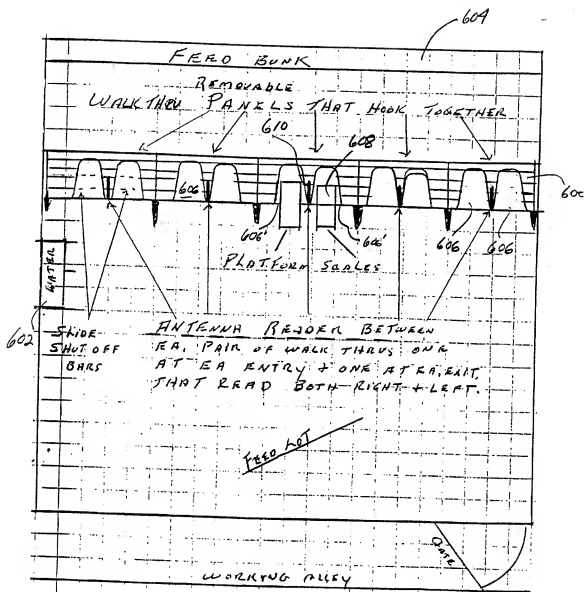 604
FEED BUNK
REMOVABLE
WALK THRU PANELS THAT HOOK TOGETHER
610
608
600
606
606'
606'
606
606
PLATFORM SCALES
WATER
602
SLIDE
SHUT OFF
BARS
ANTENNA READER BETWEEN
EA. PAIR OF WALK THRUS ONE
AT EA ENTRY + ONE AT EA. EXIT
THAT READ BOTH RIGHT + LEFT.
FEED LOT
GATE
WORKING ALLEY